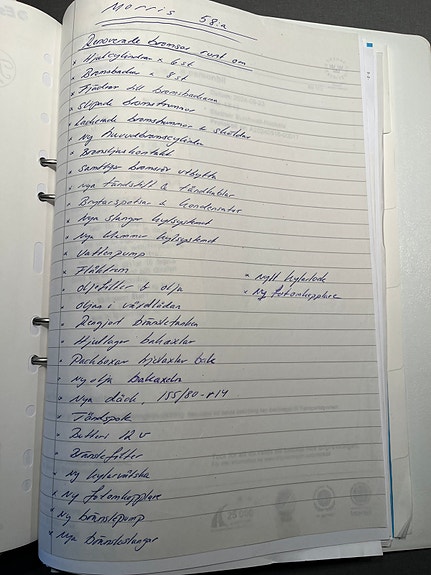 Morris 58:a
Renoverade bromsar runt om
× Hjulcylindrar × 6 st
× Bromsbackar × 8 st
× Fjädrar till bromsbackarna
× Slipade bromstrummor
× Lackerade bromstrummor & sköldar
× Ny huvudbromscylinder
× Bromsljuskontakt
× Samtliga bromsrör utbytta
× nya tändstift & tändkablar
× Brytarspetsar & kondensator
× Nya slangar kylsystemet
× Nya klammer kylsystemet
× Vattenpump
× Fläktrem
× Oljefilter & olja
× Oljan i växellådan
× Rengjort bränsletanken
× Hjullager bakaxlar
× Packboxar hjulaxlar bak
× Ny olja bakaxeln
× Nya däck, 155/80-R14
× Tändspole
× Batteri 12 v
× Bränslefilter
× Ny kylarvätska
× Ny fotomkopplare
× Ny bränslepump
× Nya bränsleslangar
× Nytt kylarlock
× Ny fotomkopplare